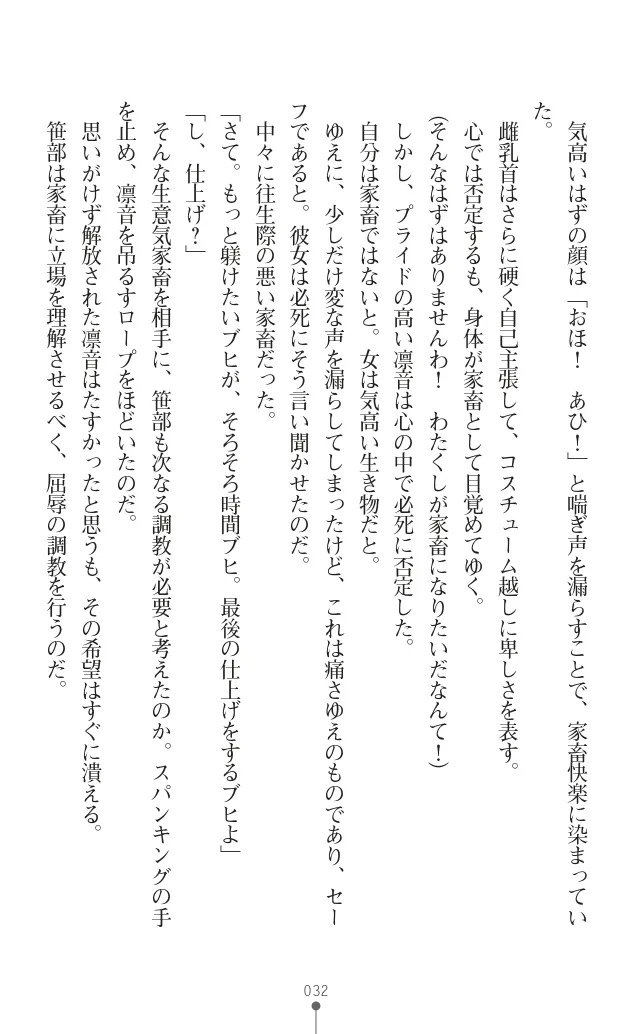 気高いはずの顔は「おほ！　あひ！」と喘ぎ声を漏らすことで、家畜快楽に染まってい
た。
雌乳首はさらに硬く自己主張して、コスチューム越しに卑しさを表す。
心では否定するも、身体が家畜として目覚めてゆく。
（そんなはずはありませんわ！　わたくしが家畜になりたいだなんて！）
しかし、プライドの高い凛音は心の中で必死に否定した。
自分は家畜ではないと。女は気高い生き物だと。
ゆえに、少しだけ変な声を漏らしてしまったけど、これは痛さゆえのものであり、セー
フであると。彼女は必死にそう言い聞かせたのだ。
中々に往生際の悪い家畜だった。
「さて。もっと躾けたいブヒが、そろそろ時間ブヒ。最後の仕上げをするブヒよ」
「し、仕上げ？」
そんな生意気家畜を相手に、笹部も次なる調教が必要と考えたのか。スパンキングの手
を止め、凛音を吊るすロープをほどいたのだ。
思いがけず解放された凛音はたすかったと思うも、その希望はすぐに潰える。
笹部は家畜に立場を理解させるべく、屈辱の調教を行うのだ。
032